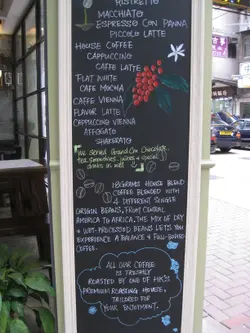 RISTRETTO
MACCHIATO
ESPRESSO CON PANNA
PICCOLO LATTE
HOUSE COFFEE
CAPPUCCINO
CAFFE LATTE
FLAT WHITE
CAFE MOCHA
CAFFE VIENNA
FLAVOR LATTE
CAPPUCCINO VIENNA
AFFOGATO
SHAKERATO
We served Grand Cru Chocolate,
tea, smoothies, juices & special
drinks as well
18GRAMS HOUSE BLEND
COFFEE BLENDED WITH
4 DIFFERENT SINGLE
ORIGIN BEANS, FROM CENTRAL
AMERICA TO AFRICA. THE MIX OF DRY
& WET-PROCESSED BEANS LETS YOU
EXPERIENCE A BALANCE & FULL-BODIED
COFFEE.
ALL OUR COFFEE
IS FRESHLY
ROASTED BY ONE OF HK'S
PREMIUM ROASTING HOUSE,
TAILORED FOR
YOUR ENJOYMENT.